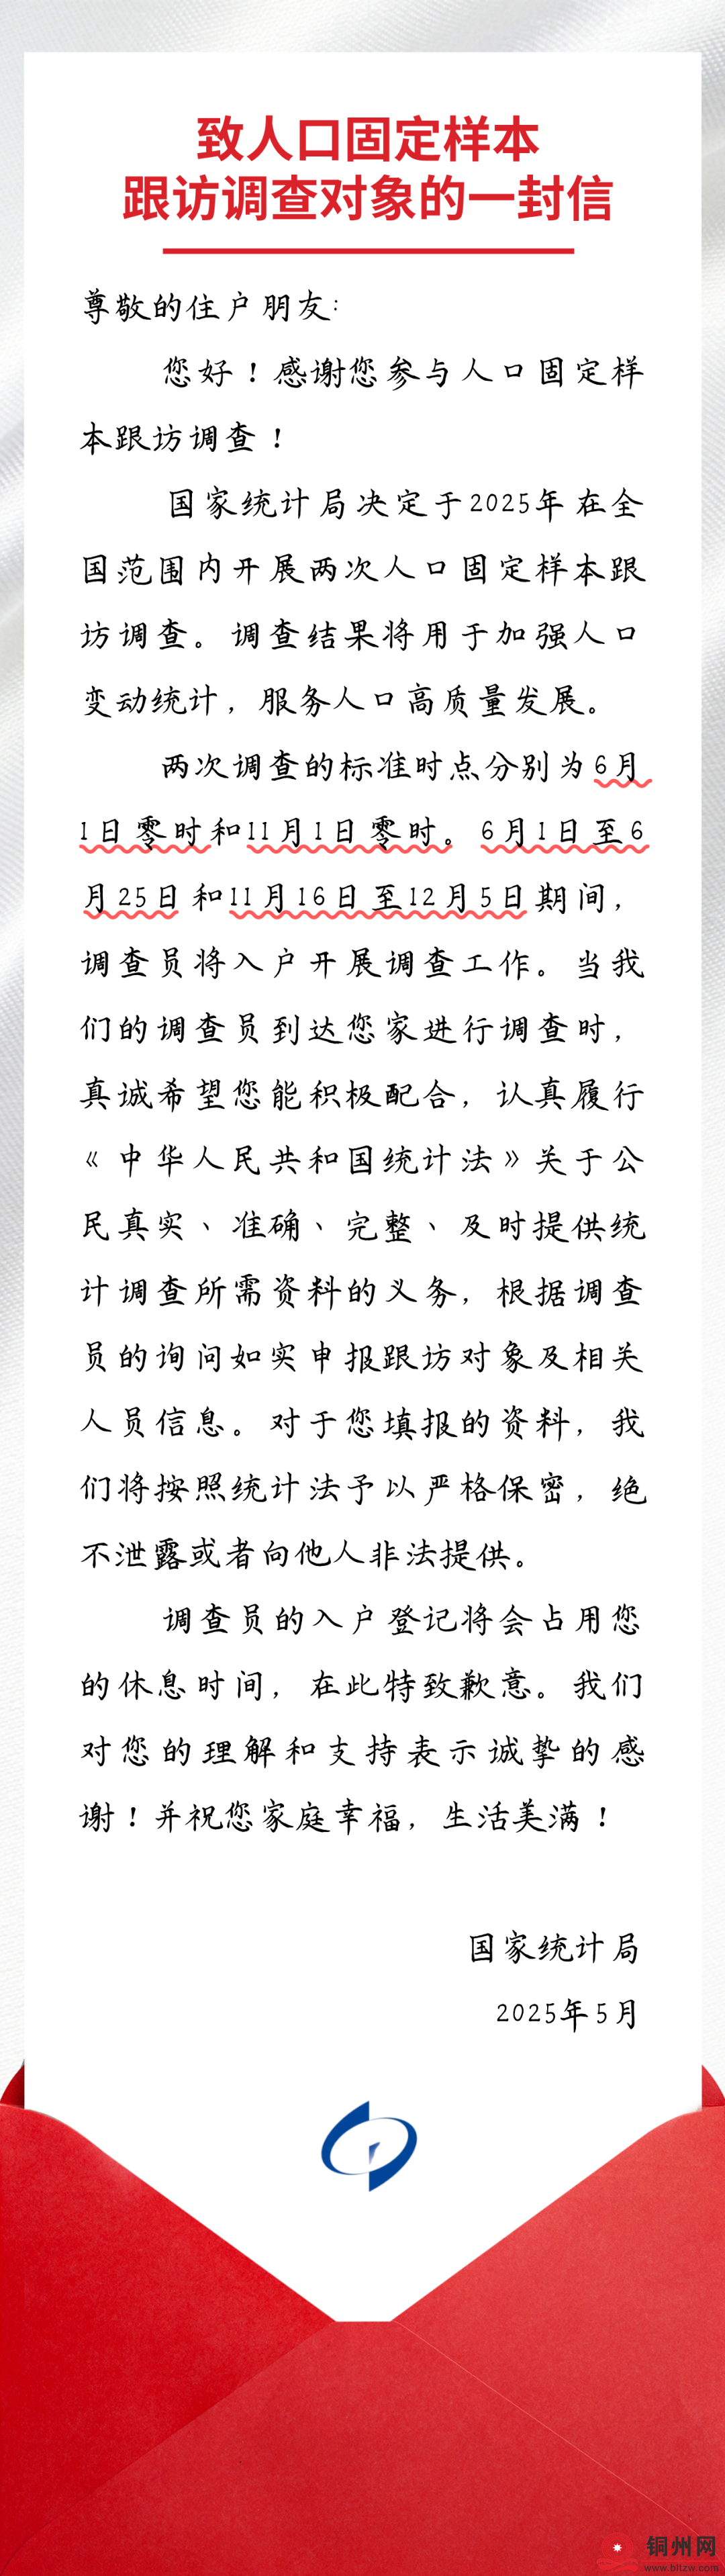 致人口固定样本
跟访调查对象的一封信
尊敬的住户朋友：
您好！感谢您参与人口固定样
本跟访调查！
国家统计局决定于2025年在全
国范围内开展两次人口固定样本跟
访调查。调查结果将用于加强人口
变动统计，服务人口高质量发展。
两次调查的标准时点分别为6月
1日零时和11月1日零时。6月1日至6
月25日和11月16日至12月5日期间，
调查员将入户开展调查工作。当我
们的调查员到达您家进行调查时，
真诚希望您能积极配合，认真履行
《中华人民共和国统计法》关于公
民真实、准确、完整、及时提供统
计调查所需资料的义务，根据调查
员的询问如实申报跟访对象及相关
人员信息。对于您填报的资料，我
们将按照统计法予以严格保密，绝
不泄露或者向他人非法提供。
调查员的入户登记将会占用您
的休息时间，在此特致歉意。我们
对您的理解和支持表示诚挚的感
谢！并祝您家庭幸福，生活美满！
国家统计局
2025年5月
铜州网
www.bltzw.com